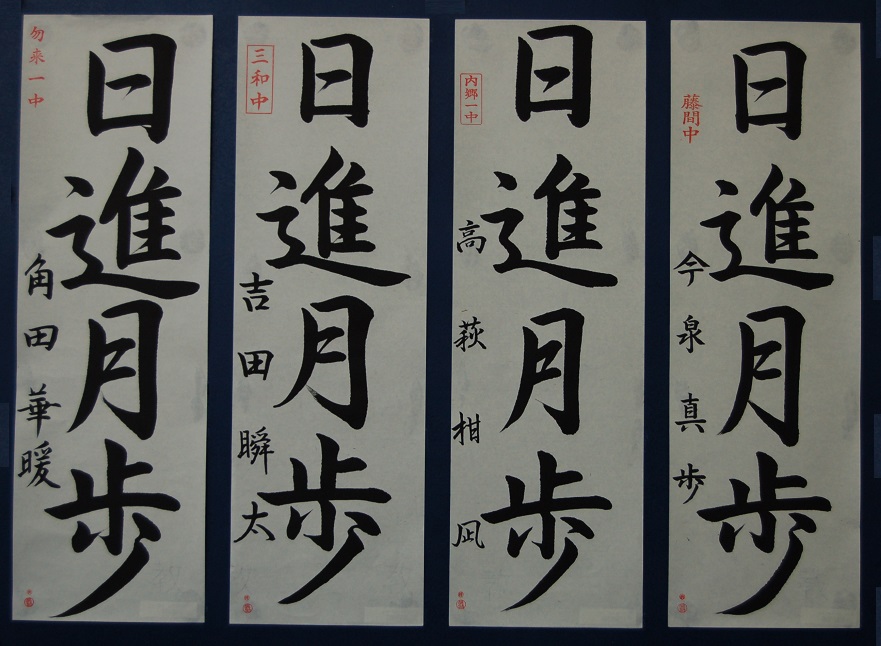 日進月歩
勿来一中
角田華暖
日進月歩
三和中
吉田瞬太
日進月歩
内郷一中
高萩柑凪
日進月歩
藤間中
今泉真歩